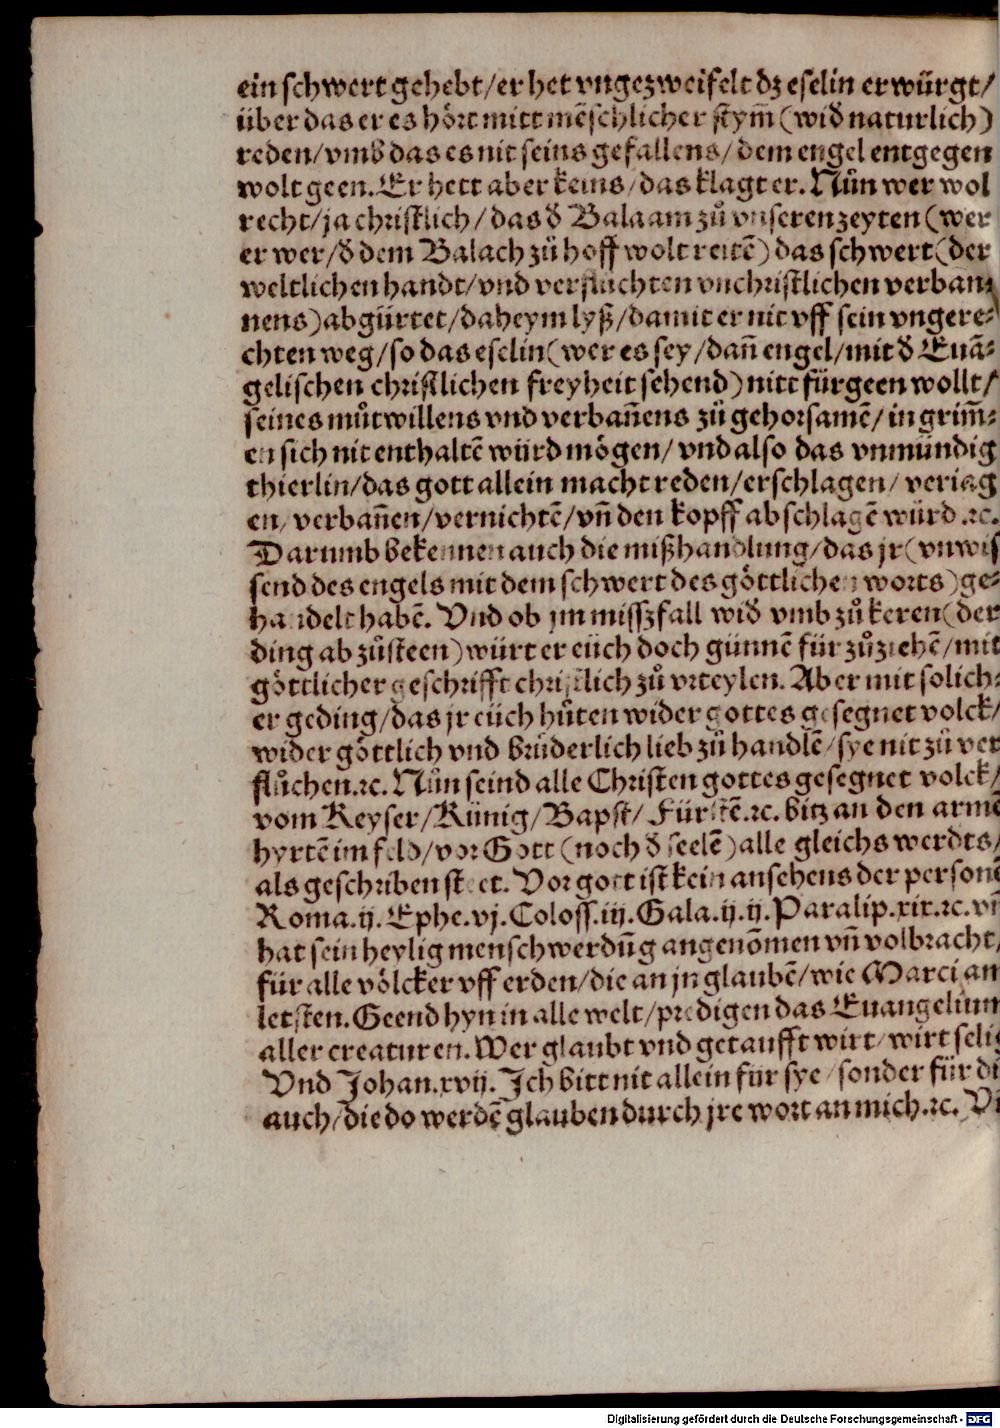 ein schwert gehebt/er het vngezweifelt dz eselin erwürgt/
über das er es hört mitt mēschlicher stym̄ (wid̕ naturlich)
reden/vmb das es nit seins gefallens/dem engel entgegen
wolt geen. Er hett aber keins/das klagt er. Nůn wer wol
recht/ja christlich/das d̕ Balaam zů vnseren zeyten (wer
er wer/d̕ dem Balach zů hoff wolt reitē) das schwert (der
weltlichen handt/vnd verflůchten vnchristlichen verban⸗
nens) abgürtet/daheym lyß/damit er nit vff sein vngere⸗
chten weg/so das eselin (wer es sey/dañ engel/mit d̕ Euā⸗
gelischen christlichen freyheit sehend) nitt fürgeen wollt/
seines můtwillens vnd verbañens zů gehorsamē/in grim̄⸗
en sich nit enthaltē würd mögen/vnd also das vnmündig
thierlin/das gott allein macht reden/erschlagen/veriag
en/verbañen/vernichtē/vñ den kopff abschlagē würd.ꝛc.
Darumb bekennen auch die mißhandlung/das jr (vnwis
send des engels mit dem schwert des göttlichen worts) ge⸗
handelt habē. Vnd ob jm misszfall wid̕ vmb zů keren (der
ding ab zůsteen) würt er eüch doch günnē für zůziehē/mit
göttlicher geschrifft christlich zů vrteylen. Aber mit solich⸗
er geding/das jr eüch hůten wider gottes gesegnet volck/
wider göttlich vnd brüderlich lieb zů handlē/sye nit zů ver
flůchen.ꝛc. Nůn seind alle Christen gottes gesegnet volck/
vom Keyser/Künig/Bapst/Fürstē.ꝛc. bitz an den armē
hyrtē im feld/vor Gott (noch d̕ seelē) alle gleichs werdts/
als geschriben steet. Vor gott ist kein ansehens der personē
Roma.ij. Ephe.vj. Coloss.iij. Gala.ij.ij. Paralip.xix.ꝛc. vñ
hat sein heylig menschwerdūg angenōmen vñ volbracht/
für alle völcker vff erden/die an jn glaubē/wie Marci am
letsten. Geend hyn in alle welt/predigen das Euangelium
aller creaturen. Wer glaubt vnd getaufft wirt/wirt selig
Vnd Johan.xvij. Ich bitt nit allein für sye/sonder für di
auch/die do werdē glauben durch jre wort an mich.ꝛc.
Digitalisierung gefördert durch die Deutsche Forschungsgemeinschaft - DFG